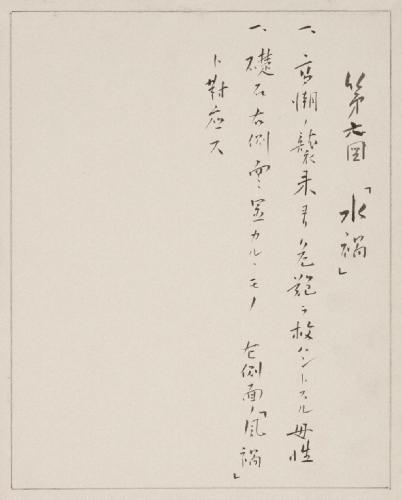 第六図「水禍」
一、高潮ノ襲来ヨリ危難ヲ救ハントスル母性
一、礎石右側面ニ置カルヽモノ 左側面ノ「風禍」
ト対応ス